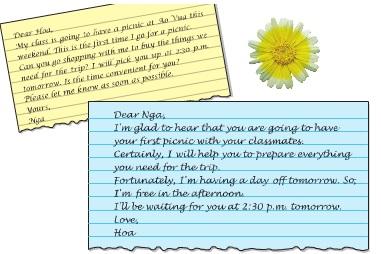 Dear Hoa,
My class is going to have a picnic at Ao Vua this
weekend. This is the first time I go for a picnic.
Can you go shopping with me to buy the things we
need for the trip? I will pick you up at 2:30 p.m.
tomorrow. Is the time convenient for you?
Please let me know as soon as possible.
Yours,
Nga
Dear Nga,
I'm glad to hear that you are going to have
your first picnic with your classmates.
Certainly, I will help you to prepare everything
you need for the trip.
Fortunately, I'm having a day off tomorrow. So;
I'm free in the afternoon.
I'll be waiting for you at 2:30 p.m. tomorrow.
Love,
Hoa